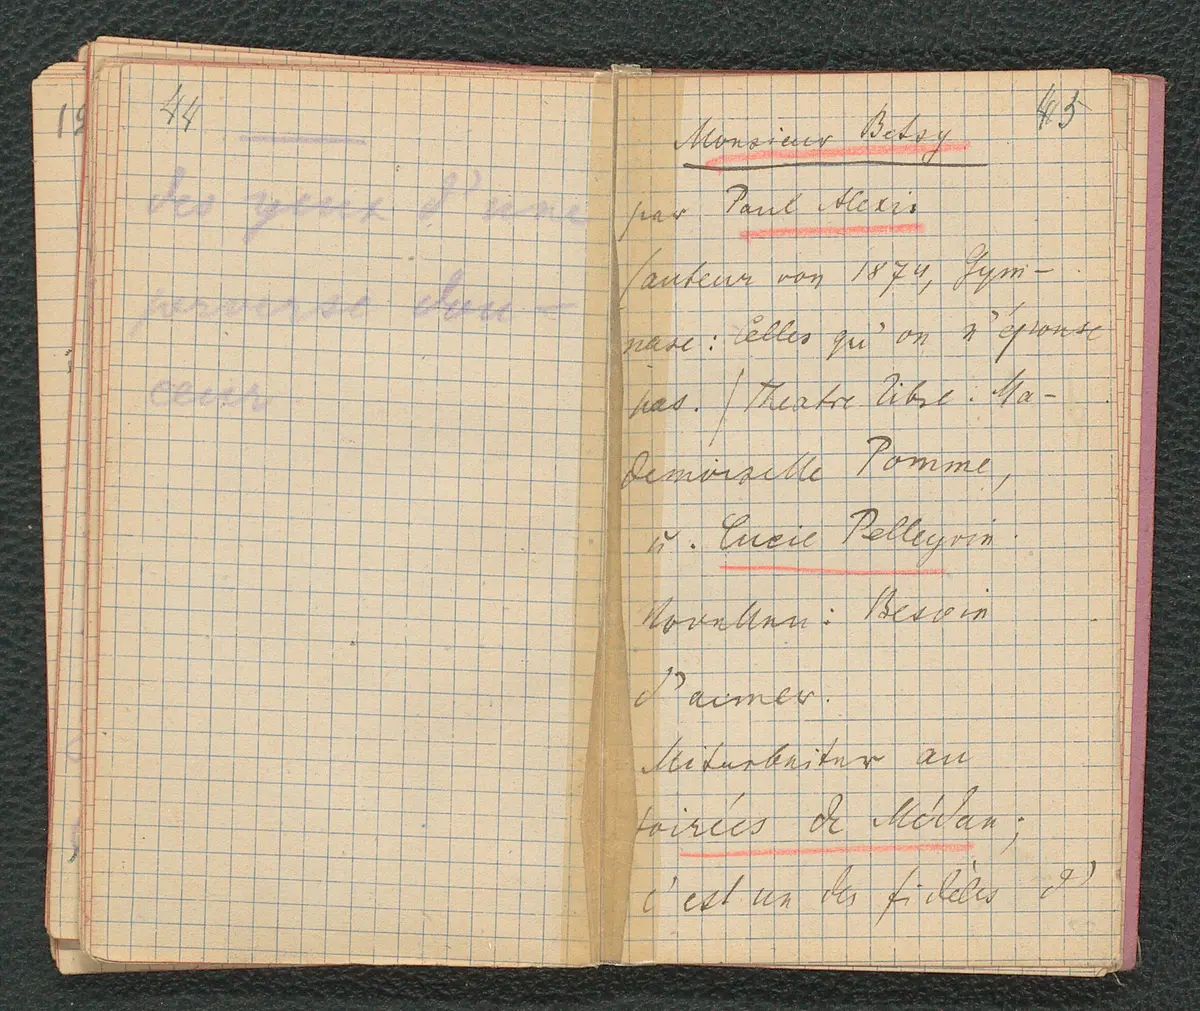 44
des yeux d'une
perverse dou-
ceur
45
Monsieur Betsy
par Paul Alexis
(auteur von 1874, Gym-
nase: Celles qu'on n'épouse
pas.) Theatre libre. Ma-
demoiselle Pomme,
u. Lucie Pellegrin.
Novellen: Besoin
d'aimer.
Mitarbeiter an
soirées de Médan;
c'est un des fidèles d'